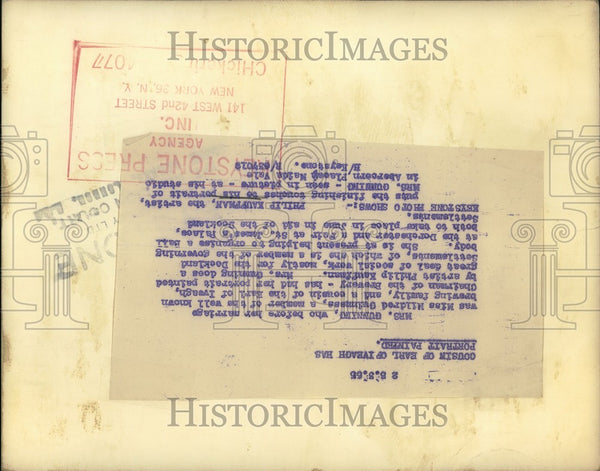 HISTORICIMAGES
KEYSTONE PRESS
AGENCY
INC.
141 WEST 42nd STREET
NEW YORK 36, N. Y.
CHickering 4077
2 8.3.55
COUSIN OF EARL OF IVEAGH HAS
PORTRAIT PAINTED.
MRS. GUNNING, who before her marriage
was Miss Mildred Guinness, a member of the well known
brewing family, and a cousin of the Earl of Iveagh,
Chairman of the brewery - has had her portrait painted
by artist Philip Kauffman. Mrs. Gunning does a
great deal of social work, mostly for the Dockland
Settlements, of which she is a member of the governing
body. She is at present helping to organise a Ball
at the Dorchester and a Fete at St. James's Palace,
both to take place in June in aid of the Dockland
Settlements.
KEYSTONE PHOTO SHOWS:- PHILIP KAUFFMAN, the artist,
puts the finishing touches to his portrait of
MRS. GUNNING - seen in picture - at his studio
in Abercorn Place, Maida Vale
H/Keystone.
HISTORICIMAGES